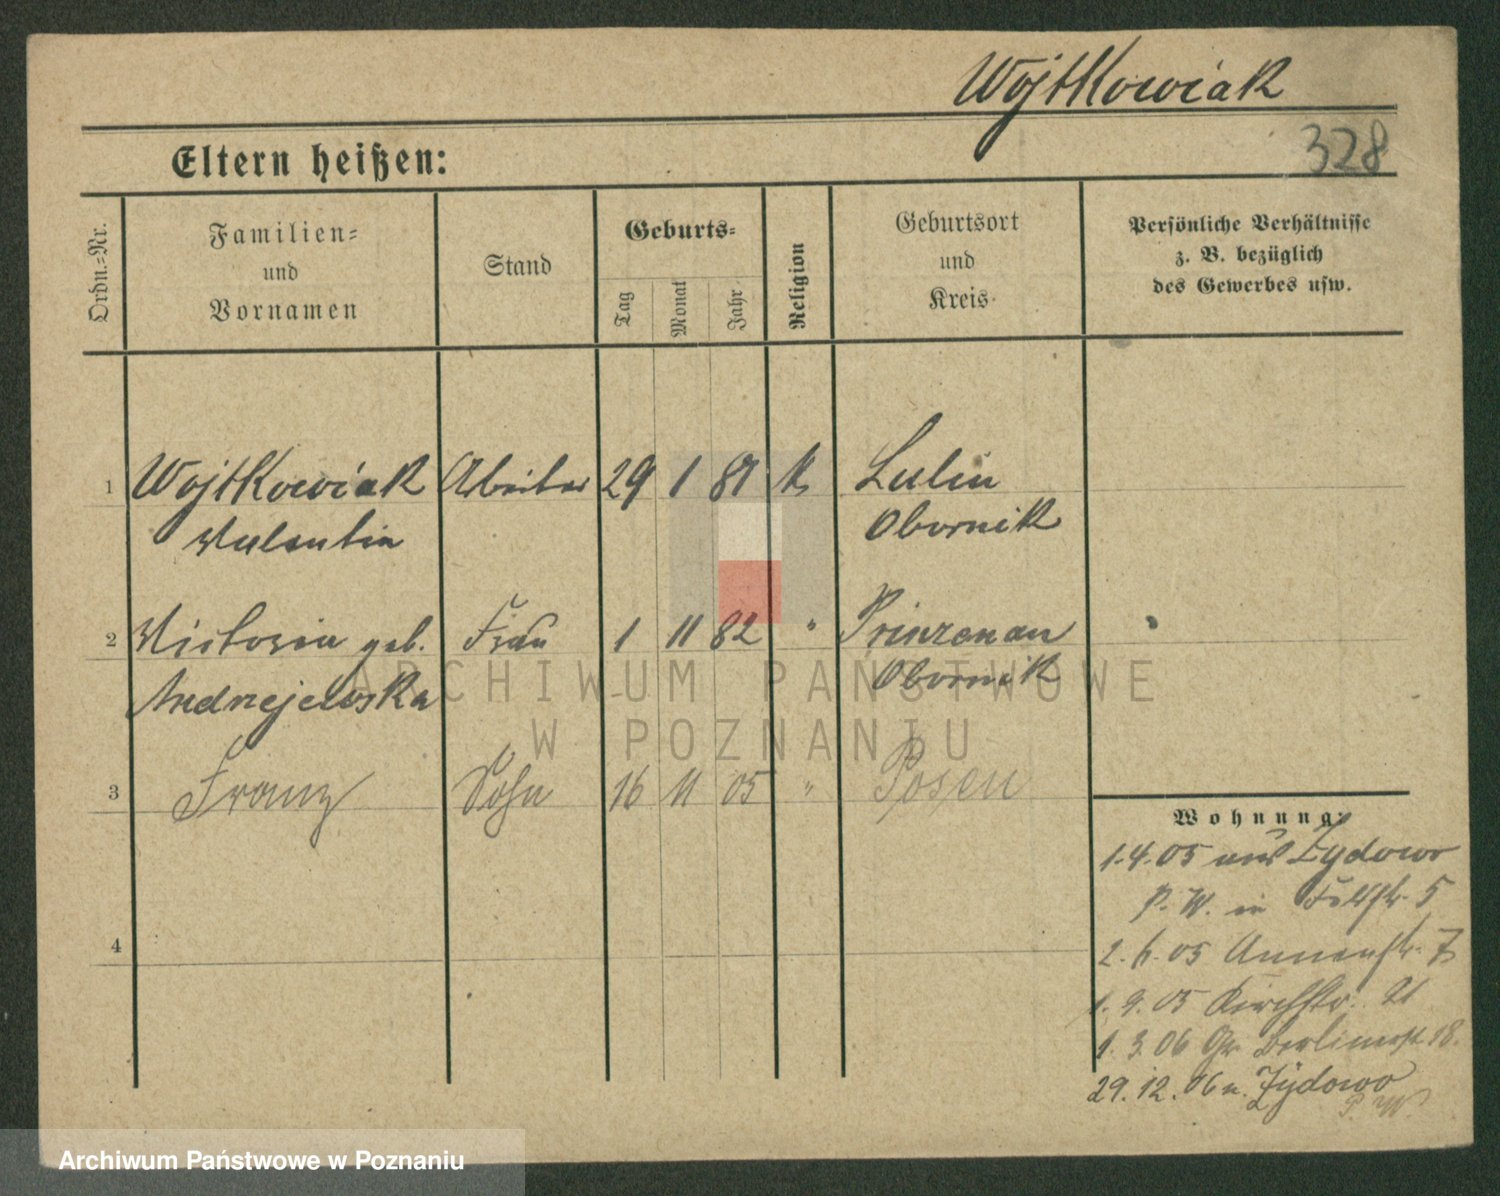 Wojtkowiak
328
Eltern heißen:
Ordn.-Nr.
Familien- und Vornamen
Stand
Geburts-
Tag
Monat
Jahr
Religion
Geburtsort und Kreis
Persönliche Verhältnisse
z. B. bezüglich
des Gewerbes usw.
1 Wojtkowiak Arbeiter 29 1 81 k Lulin
Valentin Obornik
2 Victoria geb. Frau 1 11 82 " Prinzenau
Andrzejewska Obornik
3 Franz Sohn 16 11 05 " Posen
4
Wohnung:
1.4.05 aus Zydowo
P. W. in 5
2.6.05 Annenstr. 7
1.9.05 Kirchstr. 21
1.3.06 Gr. Berlinerst 18.
29.12.06 n. Zydowo
P W.
ARCHIWUM PAŃSTWOWE
W POZNANIU
Archiwum Państwowe w Poznaniu